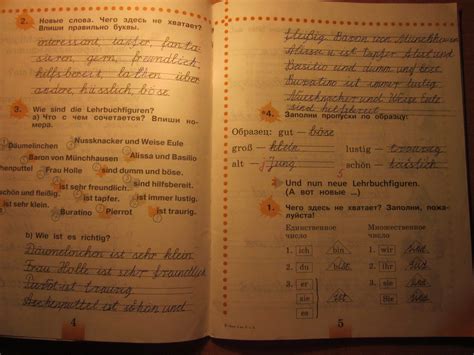 2. Новые слова. Чего здесь не хватает?
Впиши правильно буквы.
interessant, tapfer, fanta
saren, gern, freundlich,
hilfsbereit, lachen, über
andre, hässlich, böse
3. Wie sind die Lehrbuchfiguren?
a) Что с чем сочетается? Впиши но-
мера.
Däumelinchen Nussknacker und Weise Eule
Baron von Münchhausen Alissa und Basilio
chenputtel Frau Holle sind dumm und böse.
schön und fleißig. ist sehr freundlich. sind hilfsbereit.
ist sehr klein. ist tapfer. ist immer lustig.
Buratino Pierrot ist traurig.
b) Wie ist es richtig?
Däumelinchen ist sehr klein
Frau Holle ist sehr freundlich
ist traurig
ist schön und
4
fleißig. Baron von Münchhausen
ist tapfer. Alist und
Basilio und dumm und böse
Buratino ist immer lustig
Nussknacker und Weise Eule
sind hilfsbereit
4. Заполни пропуски по образцу:
Образец: gut — böse
groß — klein lustig — traurig
alt — jung schön —
2 Und nun neue Lehrbuchfiguren.
(А вот новые!)
1. Чего здесь не хватает? Заполни, пожа-
луйста!
Единственное число
Множественное число
1. ich bin 1. wir
2. du bist 2. ihr
3. er sie es ist 3. sie Sie
5